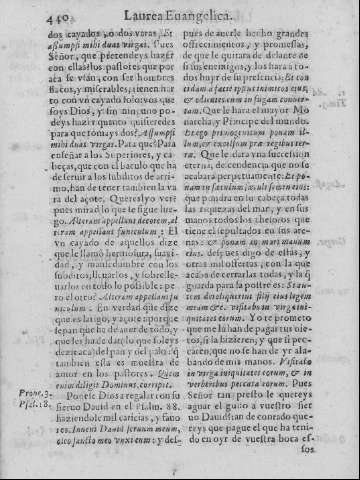 440. Laurea Euangelica.
dos cayados, o dos varas, Et
assumpsi mihi duas virgas. Pues
Señor, que pretendeys hazer
con ellas? los pastores que por
aca se vsan, con ser hombres
flacos, y miserables, tienen har
to con vn cayado solo; vos que
soys Dios, y sin ninguno po-
deys hazir quanto quisieredes
para que tomays dos? Assumpsi
mihi duas virgas. Para que? Para
enseñar a los Superiores, y ca-
beças, que con el baculo que ha
de seruir a los subditos de arri-
mo, han de tener tambien la va
ra del açote. Quereyslo ver?
pues mirad lo que se sigue lue-
go. Alteram appellaui decorem, al
teram appellaui funiculum: El
vn cayado de aquellos dize
que le llamò hermosura, suaui
dad, y mansedumbre con los
subditos; lleuarlos, y sobrelle-
uarlos en todo lo possible: pe-
ro el otro? Alteram appellaui fu
niculum. En verdad que dize
que es largo, y açote; porque
sepan que ha de auer de todo, y
que les ha de dar, lo que soleys
dezir aca) del pan y del palo: q̃
tambien esta es muestra de
amor en los pastores. Quem
enim diligit Dominus, corripit.
Prouer. 3.
Ponese Dios a regalar con su
Psal. 18.
sieruo Dauid en el Psalm. 88.
haziendole mil caricias, y fauo
res. Inueni Dauid seruum meum,
oleo sancto meo vnxi eum: y des-
pues de auerle hecho grandes
offrecimientos, y promessas,
de que le quitara de delante de
si sus enemigos, y los hara a to-
dos huyr de su presencia; Et con
cidam a facie ipsius inimicos eius,
& odientes eum in fugam conuer-
tam. Que le hara el mayor Mo
narcha, y Principe del mundo.
Et ego primogenitum ponam il-
lum, & excelsum præ regibus ter-
ræ. Que le dara vna succession
eterna, de decendencia, que no se
acabara perpetuamente. Et po-
nam in sæculum sæculi semen eius:
que pondra en su cabeça todas
las riquezas del mar, y en sus
manos todos los thesoros que
tiene el sepultados en sus are-
nas: & ponam in mari manum
eius. despues digo de estas, y
otras mil ofertas, con la que
acaba de cerrarlas todas, y la q̃
guarda para la postre es: Si au-
tem dereliquerint filij eius legem
meam &c. visitabo in virga ini-
quitates eorum. Y o te prometo
que me lo han de pagar tus nie-
tos, si la hizieren, y que si pe-
caren, que no se han de yr ala-
bando de mis manos. Visitabo
in virga iniquitates eorum, & in
verberibus peccata eorum. Pues
Señor tan presto le quereys
aguar el gusto a vuestro sier
uo Dauid? tan de contado que-
reys que pague el que ha teni-
do en oyr de vuestra boca es-
sos